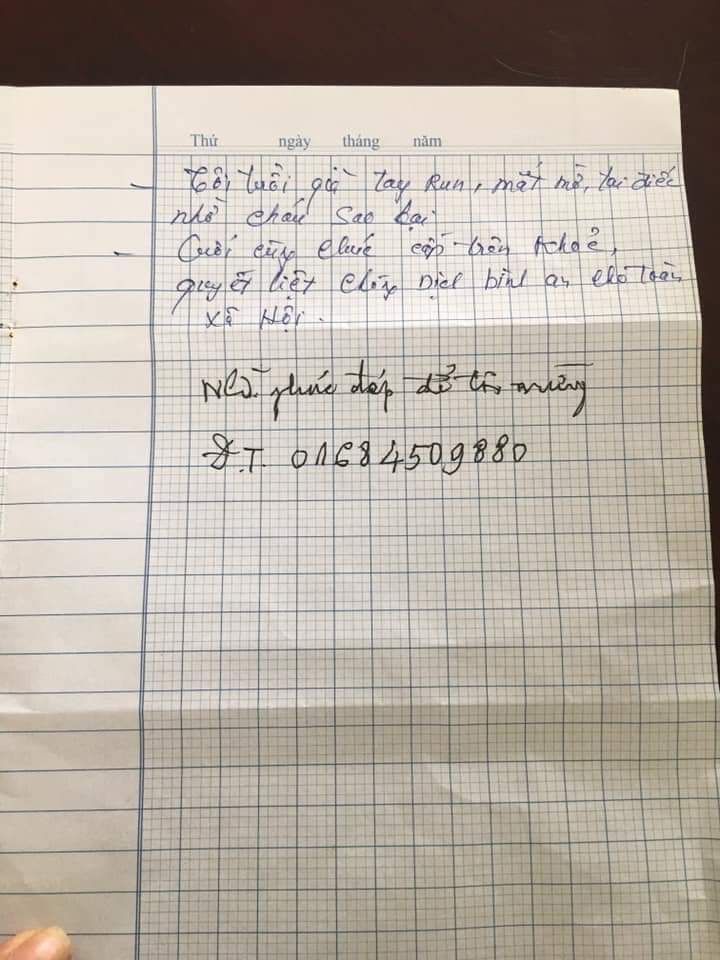 Thứ ngày tháng năm
- Tôi, tuổi già tay Run, mắt mờ, tai điếc
nhờ cháu Sao lại
- Cuối cùng chúc cấp trên khoẻ,
quyết liệt chống Dịch bình an cho toàn
Xã Hội.
phúc đáp để tôi mừng
Đ.T. 01684509880